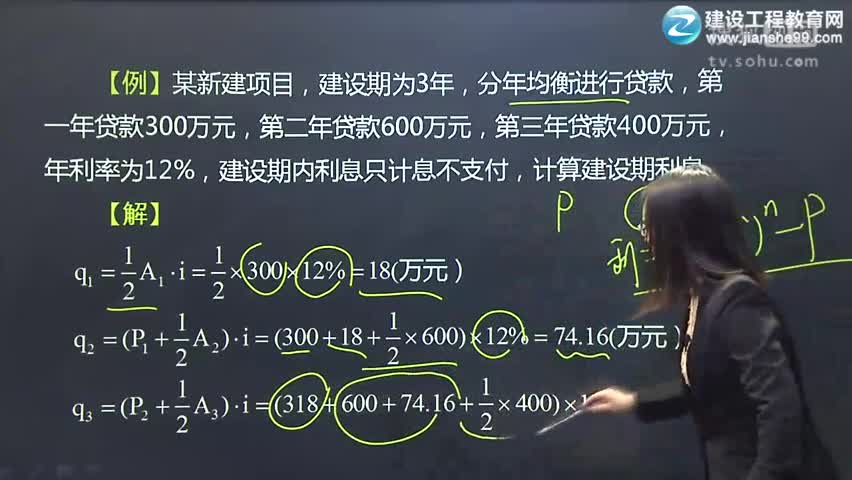 建设工程教育网
www.jianshe99.com
tv.sohu.com
【例】某新建项目，建设期为3年，分年均衡进行贷款，第
一年贷款300万元，第二年贷款600万元，第三年贷款400万元，
年利率为12%，建设期内利息只计息不支付，计算建设期利息
【解】
P
)ⁿ-P
利
q₁=1/2A₁·i=1/2×300×12%=18(万元)
q₂=(P₁+1/2A₂)·i=(300+18+1/2×600)×12%=74.16(万元)
q₃=(P₂+1/2A₃)·i=(318+600+74.16+1/2×400)×1